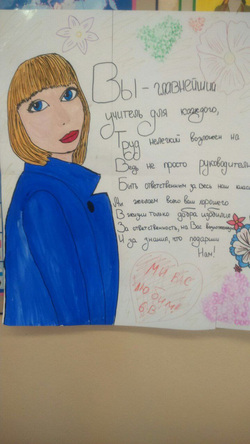 Вы - главнейший
учитель для каждого,
Труд нелегкий возложен на
Ведь не просто руководитель
Быть ответственным за весь наш класс
Мы желаем всем вам хорошего
В жизни только добра
За ответственность, на Вас
И за знания, что подарили
Нам!
Мы Вас
любим
6 В